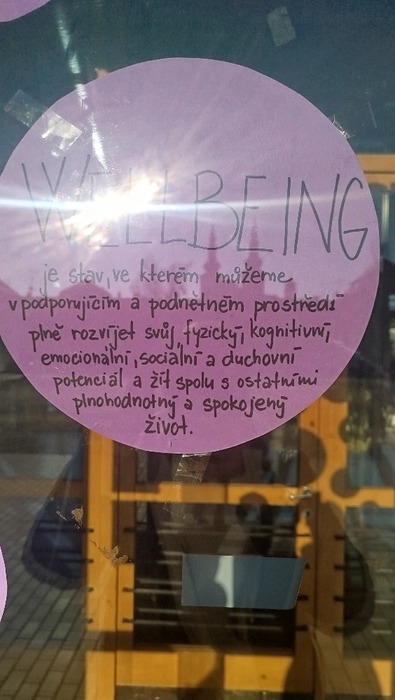 WELLBEING
je stav, ve kterém můžeme
v podporujícím a podnětném prostředí
plně rozvíjet svůj fyzický, kognitivní,
emocionální, sociální a duchovní
potenciál a žít spolu s ostatními
plnohodnotný a spokojený
život.